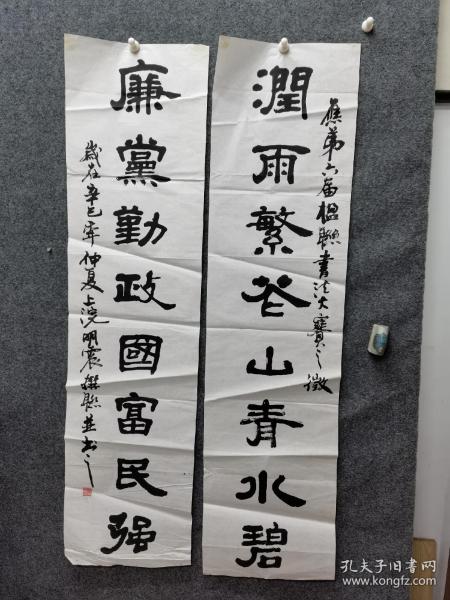 潤雨繁花山青水碧
應第六届楹聯書法大賽之徵
廉黨勤政國富民强
歲在辛巳年仲夏上浣明震撰聯並書之
孔夫子旧书网
www.kongfz.com